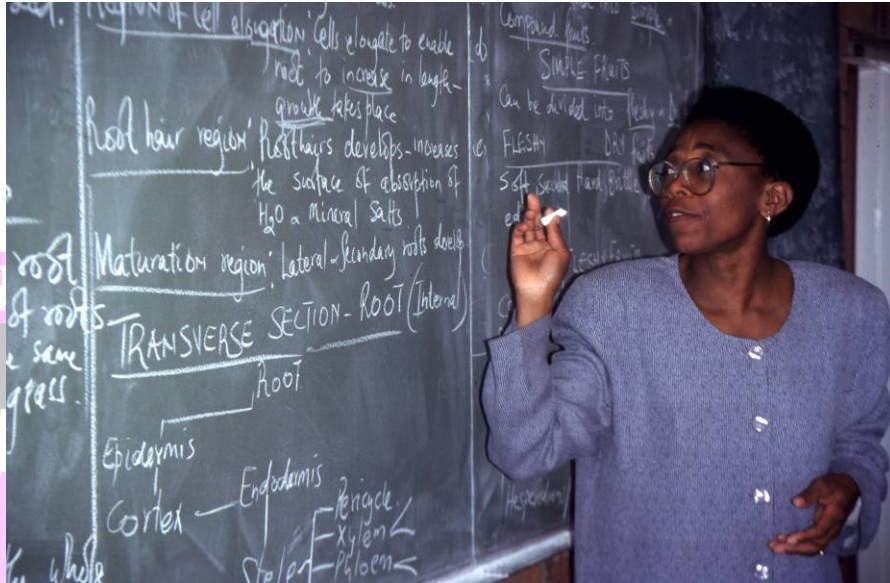 REGION of Cell elongation: Cells elongate to enable
root to increase in length-
growth takes place
Root hair region: Root hairs develops - increases
the surface of absorption of
H2O & Mineral Salts
Maturation region: Lateral & Secondary roots develop
TRANSVERSE SECTION - ROOT (Internal)
ROOT
Epidermis
Cortex - Endodermis
Pericycle
Xylem
Phloem
root
of roots
same
grass.
whole
Compound fruits
SIMPLE FRUITS
Can be divided into Fleshy &
FLESHY DRY
Soft, Hard,
FLESHY FRUITS